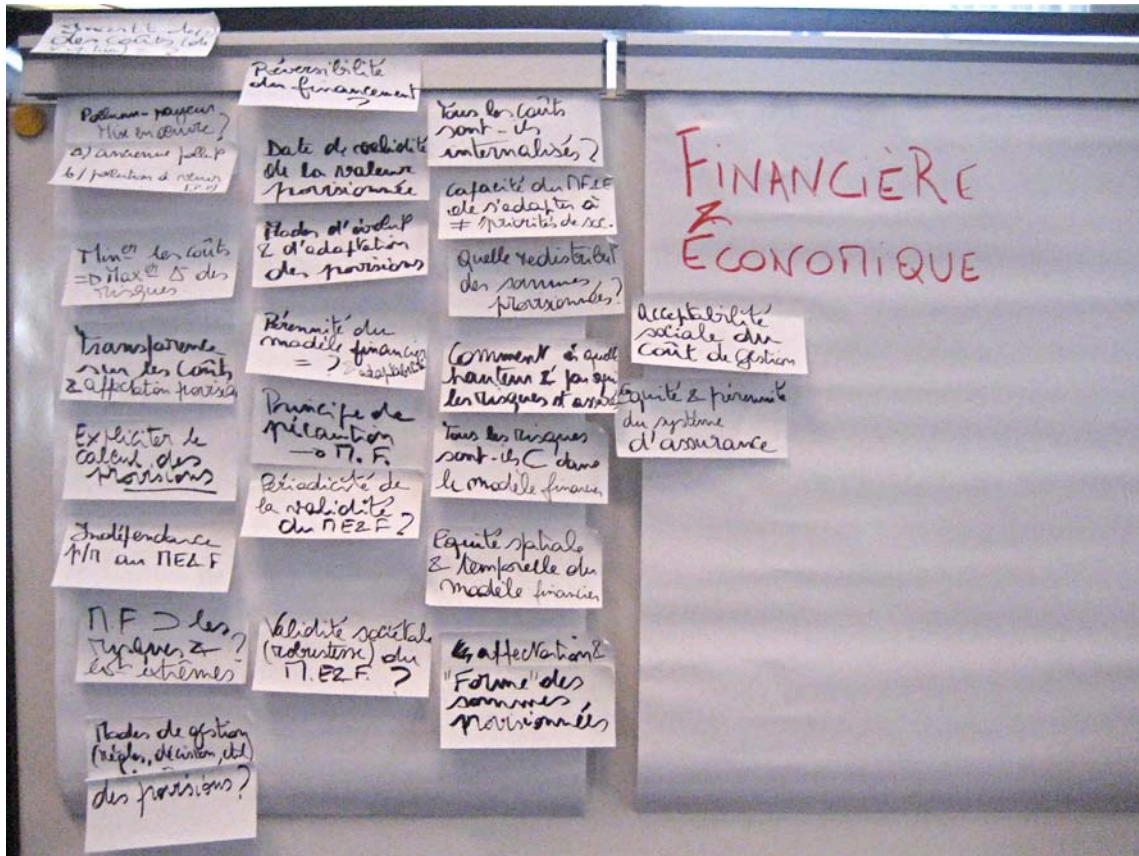 des coûts (de
Pollueur-payeur
Mise en œuvre?
a) ancienne pollut°
b) pollution à venir
Min^er les coûts
=> Max^er Δ des
risques
Transparence
sur les coûts
& affectation provis°
Expliciter le
calcul des
provisions
Indépendance
p/r au ME&F
M.F ⊃ les
risques &
évt extrêmes?
Modes de gestion
(règles, décision, ctrl)
des provisions?
Réversibilité
du financement
?
Date de validité
de la valeur
provisionnée
Modes d'évolut°
& d'adaptation
des provisions
Pérennité du
modèle financier
= ? & adaptabilité
Principe de
précaution
→ M.F.
Périodicité de
la validité
du ME&F?
Validité sociétale
(robustesse) du
M.E&F. ?
Tous les coûts
sont-ils
internalisés?
Capacité du MF&E
de s'adapter à
≠ priorités de soc.
Quelle redistribut°
des sommes
provisionnées?
Comment à quelle
hauteur & par qui
les risques st
Tous les risques
sont-ils C dans
le modèle financier
Equité spatiale
& temporelle du
modèle financier
↳ affectation &
"Forme" des
sommes
provisionnées
FINANCIÈRE
&
ÉCONOMIQUE
Acceptabilité
sociale du
coût de gestion
Equité & pérennité
du système
d'assurance